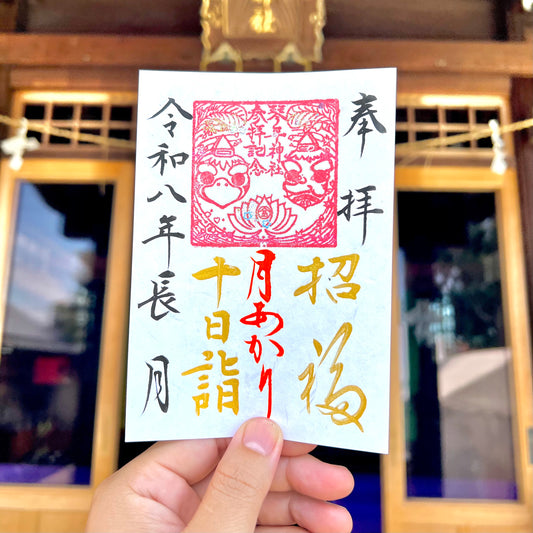 奉拝
招福
神社
参拝記念
月あかり
十日詣
令和八年長月